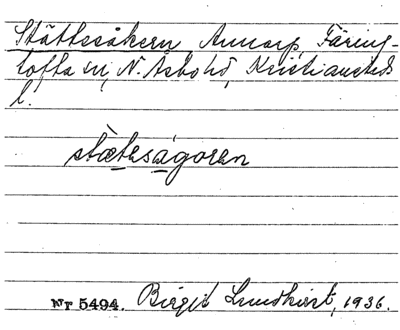 Stättesåkern, Annarp, Färing-
tofta sn, N. Åsbo hd, Kristianstads
l.
stæteságoren
Nr 5494. Birget Lundkvist, 1936.